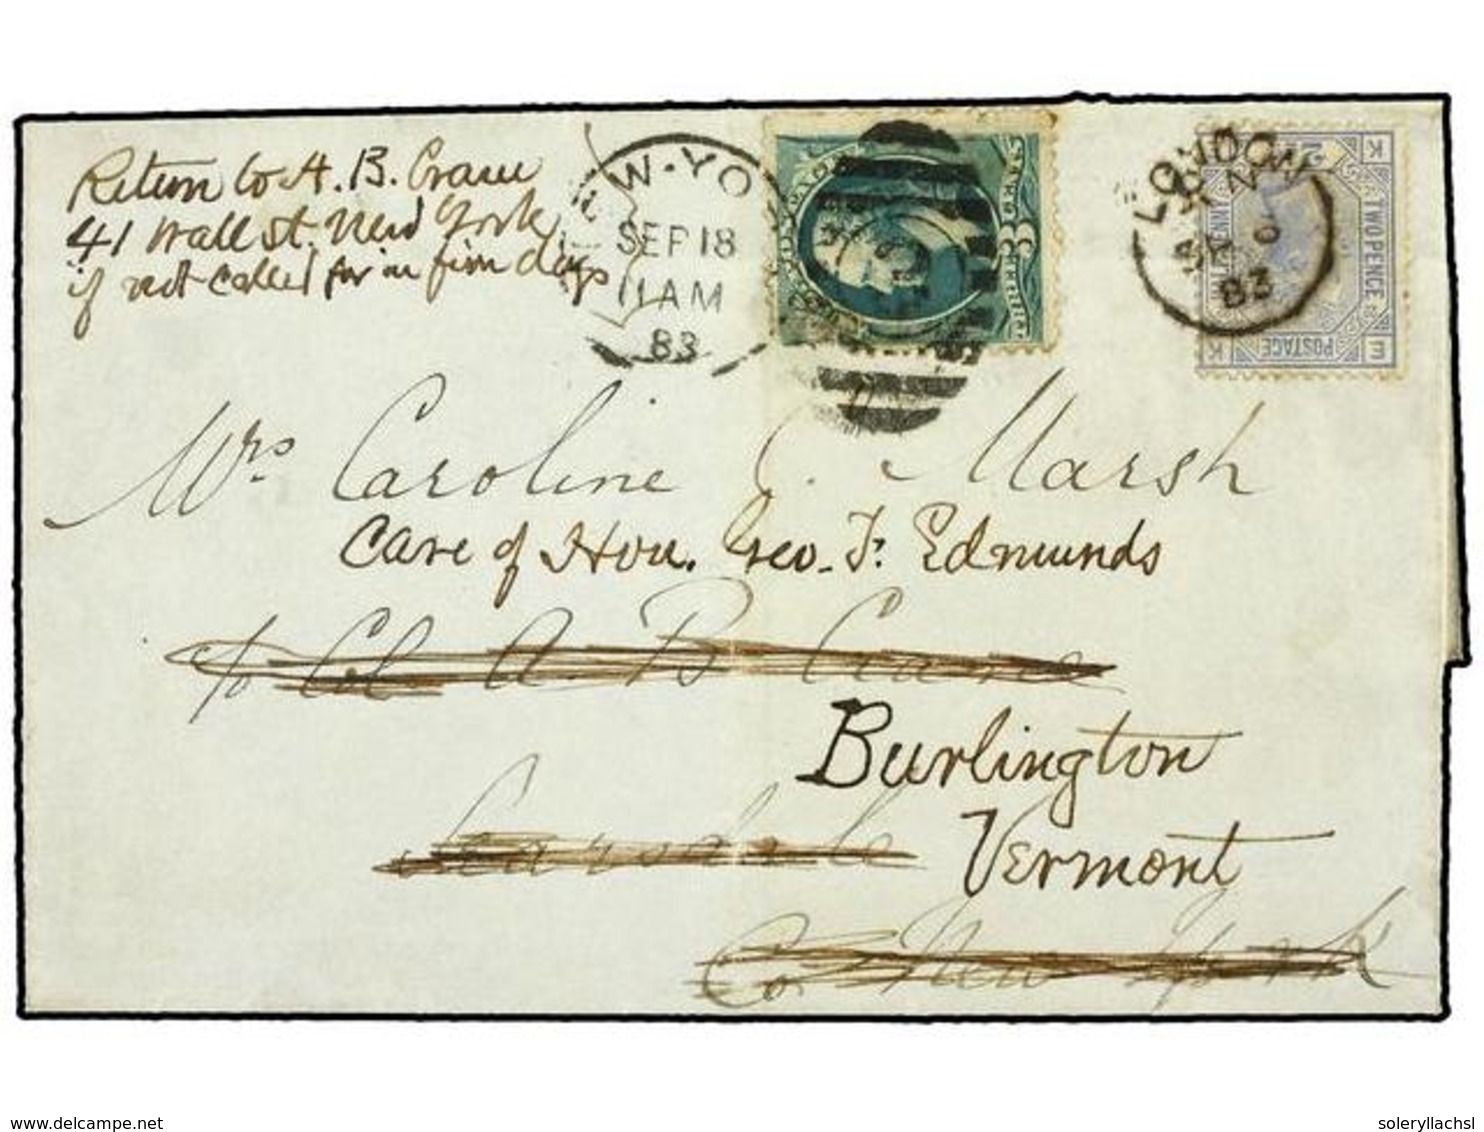 Return to A. B. Crane
41 Wall st. New York
if not called for in five days
W-YO
SEP 18
11 AM
83
LONDON
83
TWO PENCE
POSTAGE
K
K
E
Mrs Caroline C. Marsh
Care of Hon. Geo. F. Edmunds
c/o Col. A. B. Crane
Burlington
Scarsdale
Vermont
Co. New York
delcampe.net
soleryllachsl